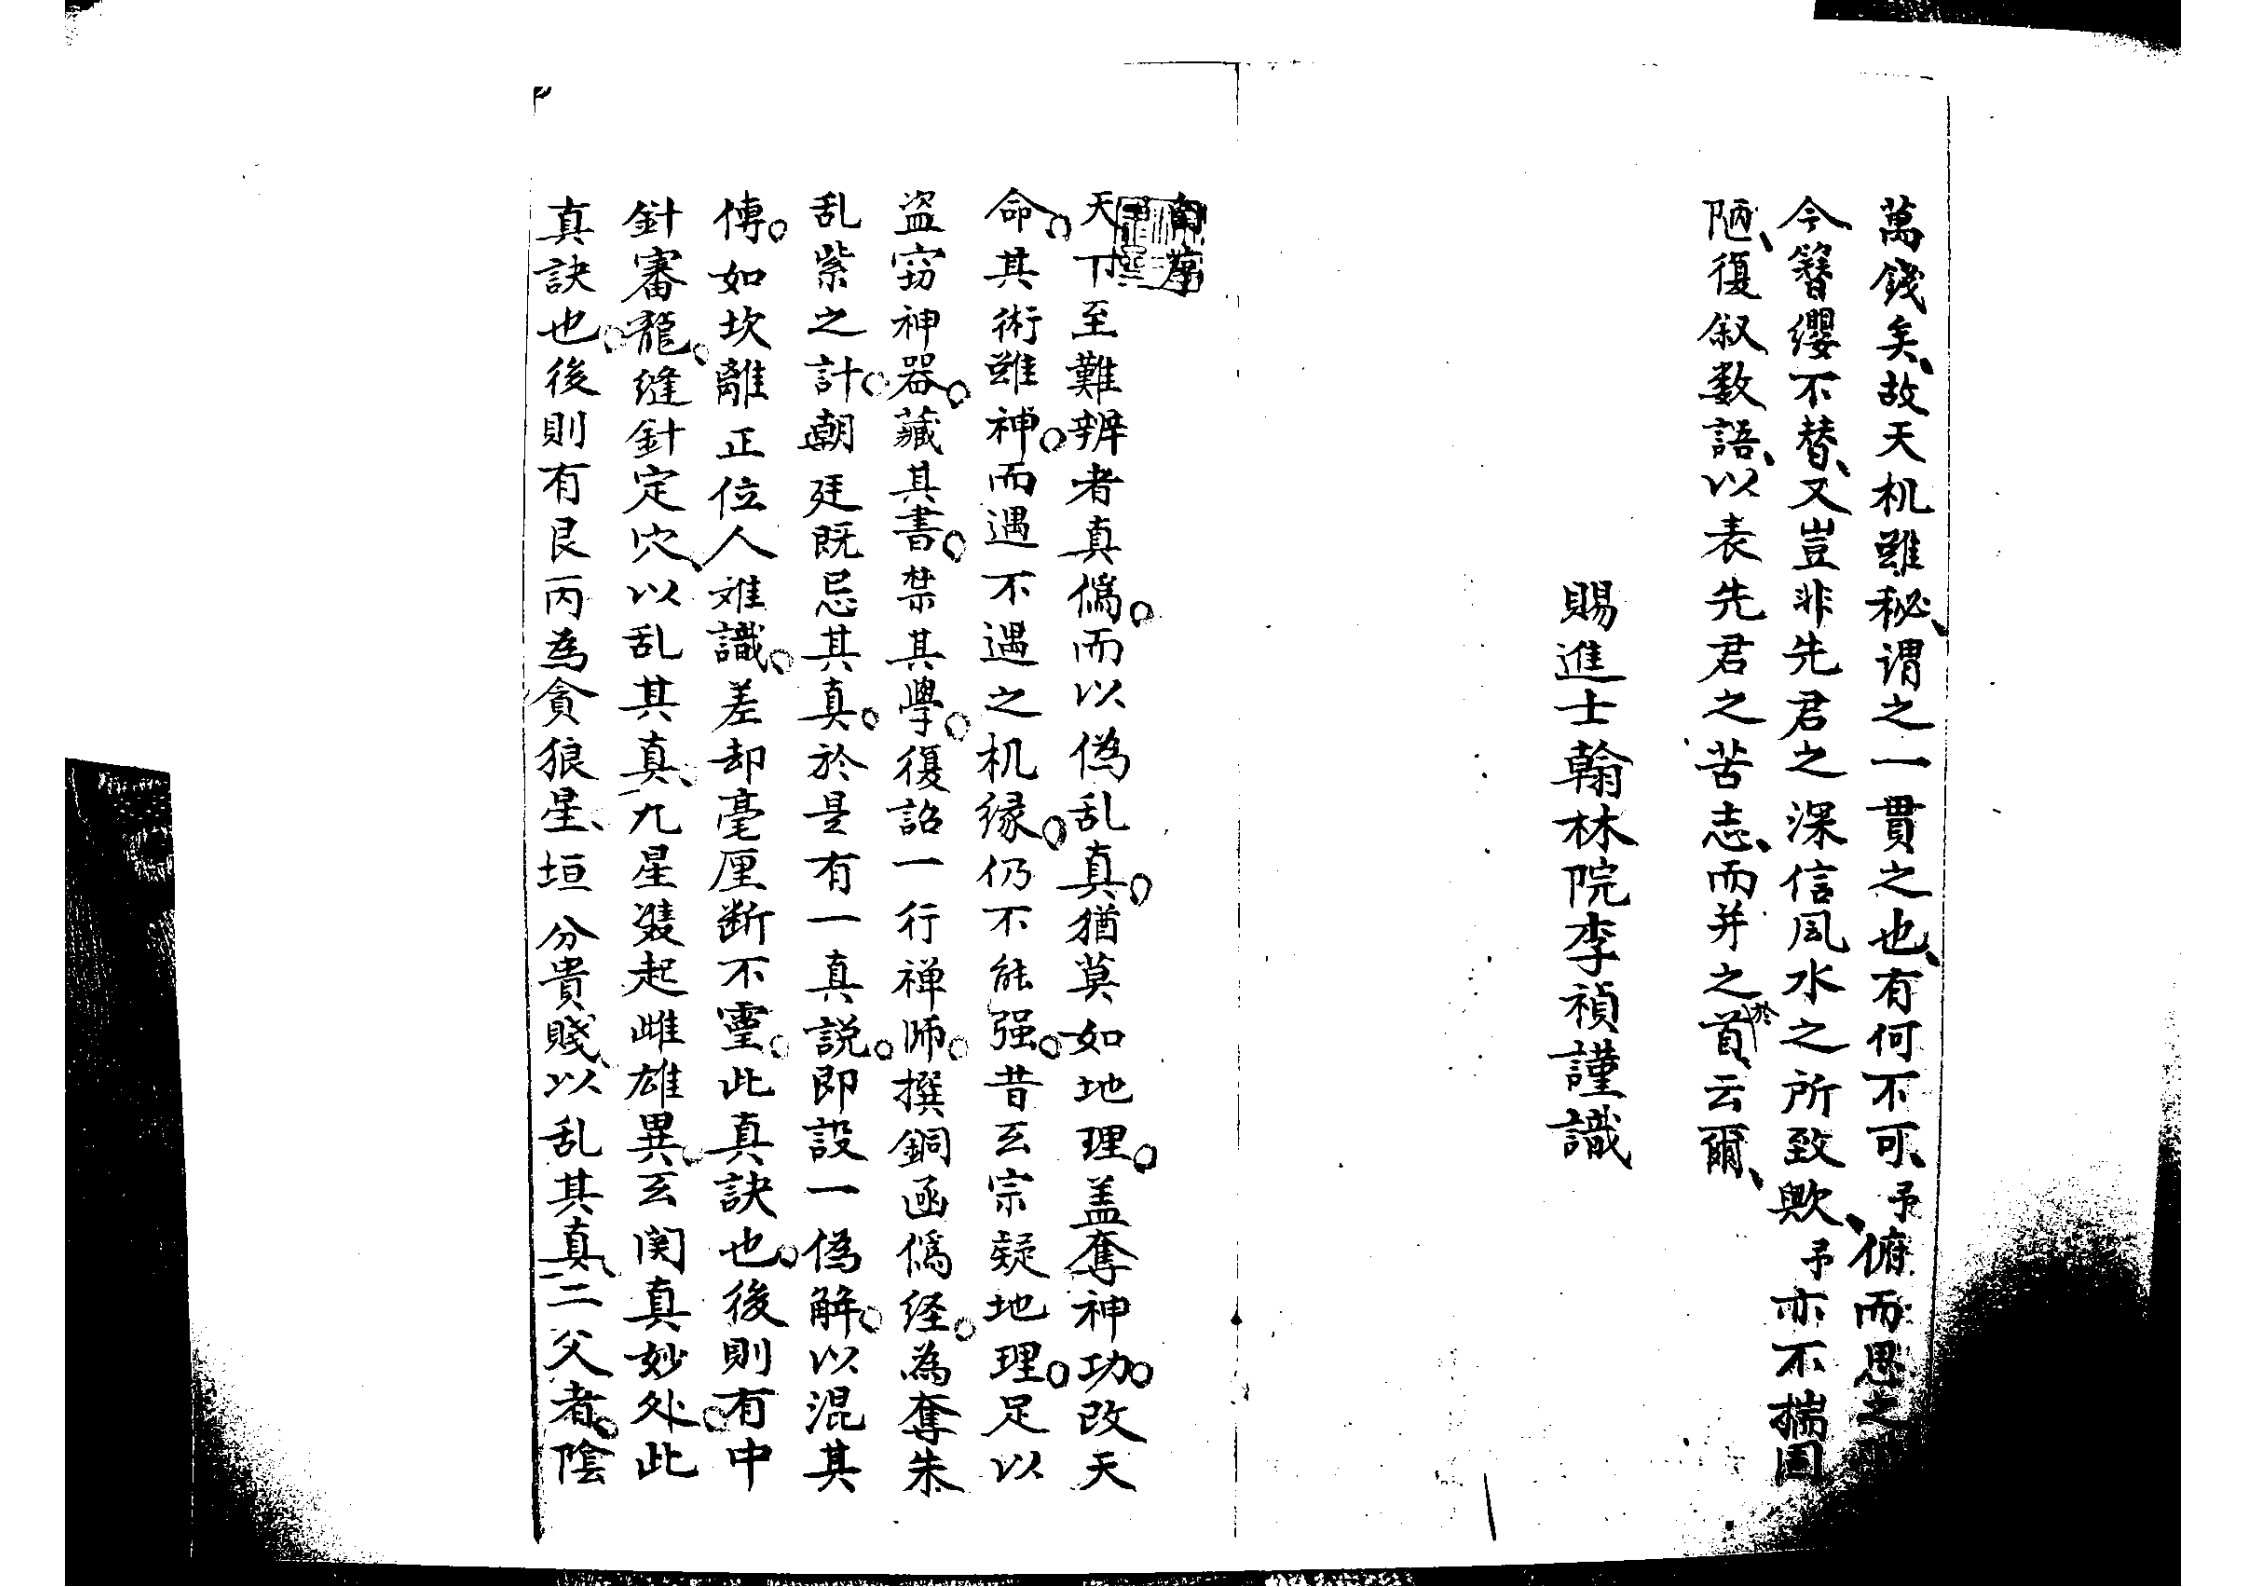 萬錢矣、故天机雖秘、谓之一貫之也、有何不可、予俯而思之
今簪纓不替、又豈非先君之深信風水之所致歟、予亦不揣固
陋、復叙数語、以表先君之苦志、而并之於首、云爾、
賜進士翰林院李禎謹識
自序
天下至難辨者真僞。而以偽乱真。猶莫如地理。盖奪神功。改天
命。其術雖神。而遇不遇之机缘。仍不能强。昔玄宗疑地理。足以
盗窃神器。藏其書。禁其學。復詔一行禅师。撰銅函僞经。為奪朱
乱紫之計。朝廷既忌其真。於是有一真説。即設一偽解。以混其
傳。如坎離正位人难識。差却毫厘断不靈。此真訣也。後則有中
針審龍。缝針定穴、以乱其真、九星雙起雌雄異。玄関真妙处。此
真訣也。後則有艮丙為貪狼星、垣分貴賤、以乱其真、二父者。陰